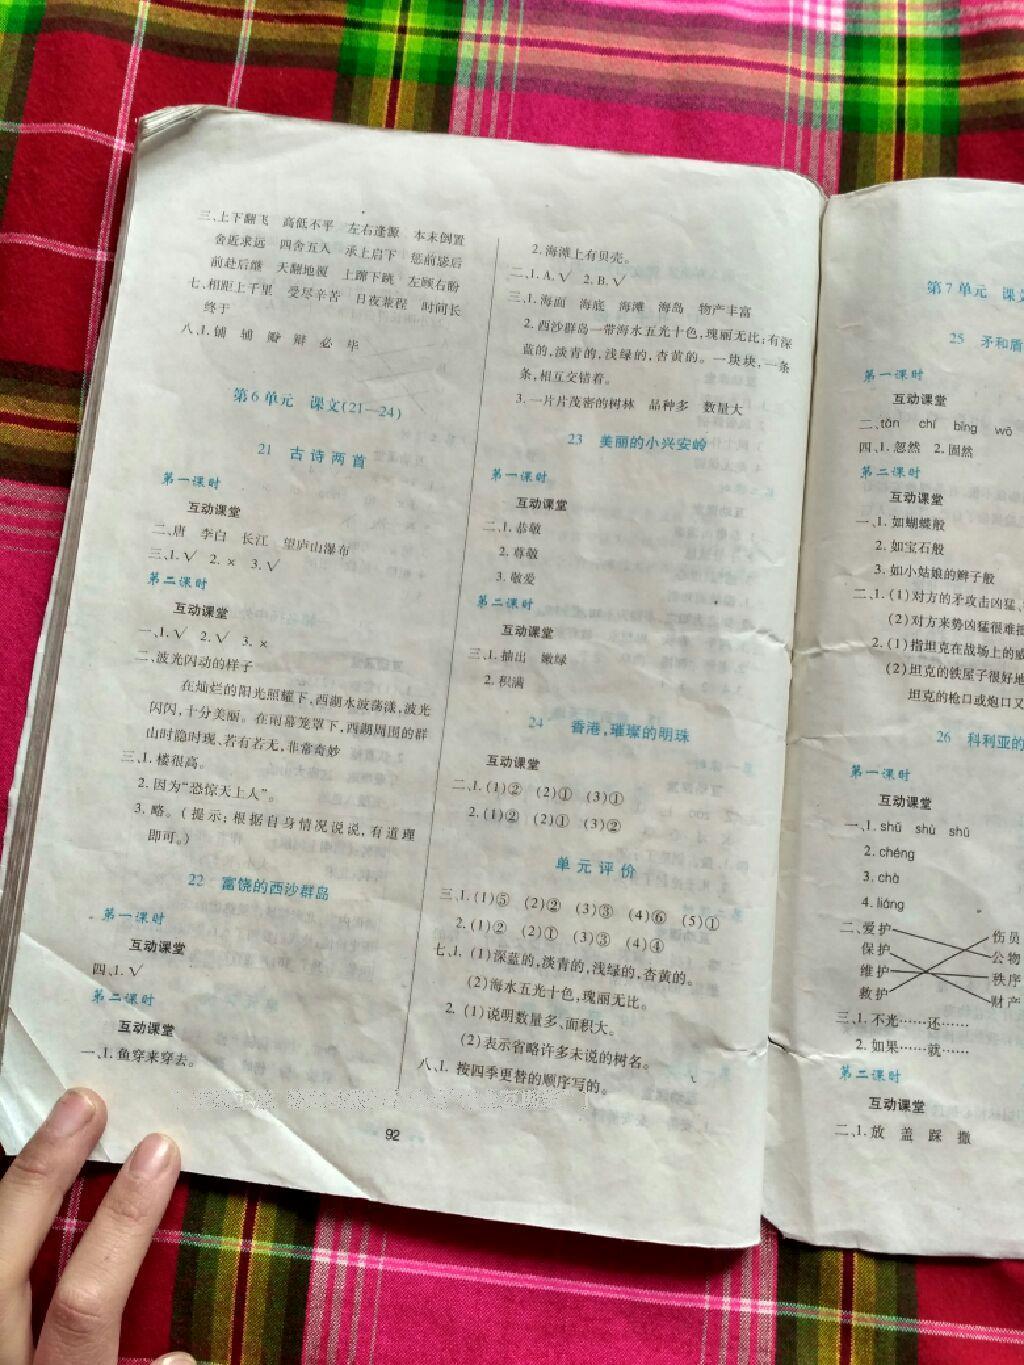 三、上下翻飞 高低不平 左右逢源 本末倒置
舍近求远 四舍五入 承上启下 惩前毖后
前赴后继 天翻地覆 上蹿下跳 左顾右盼
七、相距上千里 受尽辛苦 日夜兼程 时间长
终于
八、1. 铺 辅 瓣 辩 必 毕
第6单元 课文(21—24)
21 古诗两首
第一课时
互动课堂
二、唐 李白 长江 望庐山瀑布
三、1.√ 2.× 3.√
第二课时
互动课堂
一、1.√ 2.√ 3.×
二、波光闪动的样子
在灿烂的阳光照耀下,西湖水波荡漾,波光
闪闪,十分美丽。在雨幕笼罩下,西湖周围的群
山时隐时现、若有若无,非常奇妙
三、1. 楼很高。
2. 因为“恐惊天上人”。
3. 略。(提示:根据自身情况说说,有道理
即可。)
22 富饶的西沙群岛
第一课时
互动课堂
四、1.√
第二课时
互动课堂
一、1. 鱼穿来穿去。
2. 海滩上有贝壳。
二、1. A.√ 2. B.√
三、1. 海面 海底 海滩 海岛 物产丰富
2. 西沙群岛一带海水五光十色,瑰丽无比:有深
蓝的,淡青的,浅绿的,杏黄的。一块块,一条
条,相互交错着。
3. 一片片茂密的树林 品种多 数量大
23 美丽的小兴安岭
第一课时
互动课堂
二、1. 恭敬
2. 尊敬
3. 敬爱
第二课时
互动课堂
三、1. 抽出 嫩绿
2. 积满
24 香港,璀璨的明珠
互动课堂
二、1. (1)② (2)① (3)①
2. (1)② (2)① (3)②
单元评价
三、1. (1)⑤ (2)② (3)③ (4)⑥ (5)①
2. (1)② (2)① (3)③ (4)④
七、1. (1)深蓝的,淡青的,浅绿的,杏黄的。
(2)海水五光十色,瑰丽无比。
2. (1)说明数量多、面积大。
(2)表示省略许多未说的树名。
八、1. 按四季更替的顺序写的。
92
第7单元 课文
25 矛和盾
第一课时
互动课堂
二、tōn chí bīng wō
四、1. 忽然 2. 固然
第二课时
互动课堂
一、1. 如蝴蝶般
2. 如宝石般
3. 如小姑娘的辫子般
二、1. (1)对方的矛攻击凶猛、
(2)对方来势凶猛很难抵
2. (1)指坦克在战场上的威
(2)坦克的铁屋子很好地
坦克的枪口或炮口又
26 科利亚的
第一课时
互动课堂
一、1. shū shù shū
2. chéng
3. chā
4. liáng
二、爱护 伤员
保护 公物
维护 秩序
救护 财产
三、1. 不光……还……
2. 如果……就……
第二课时
互动课堂
二、1. 放 盖 踩 撒